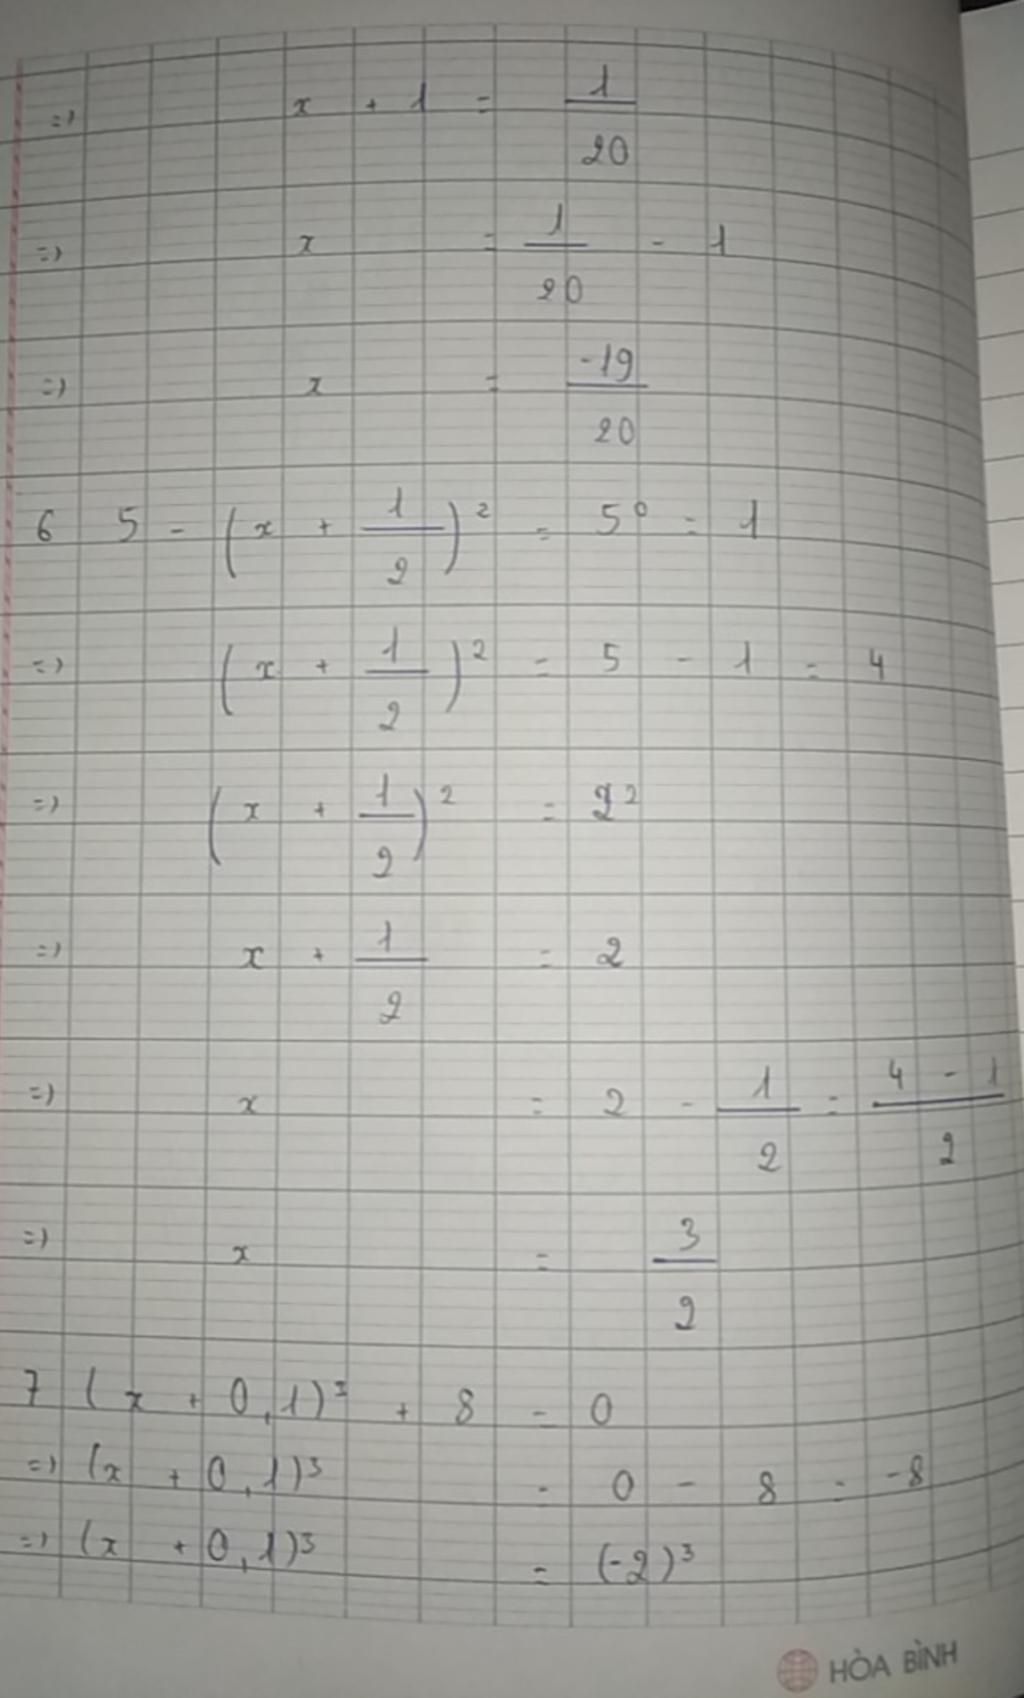 => x + 1 = 1/20
=> x = 1/20 - 1
=> x = -19/20
6 5 - (x + 1/2)² = 5⁰ = 1
=> (x + 1/2)² = 5 - 1 = 4
=> (x + 1/2)² = 2²
=> x + 1/2 = 2
=> x = 2 - 1/2 = (4 - 1)/2
=> x = 3/2
7 (x + 0,1)³ + 8 = 0
=> (x + 0,1)³ = 0 - 8 = -8
=> (x + 0,1)³ = (-2)³
HÒA BÌNH